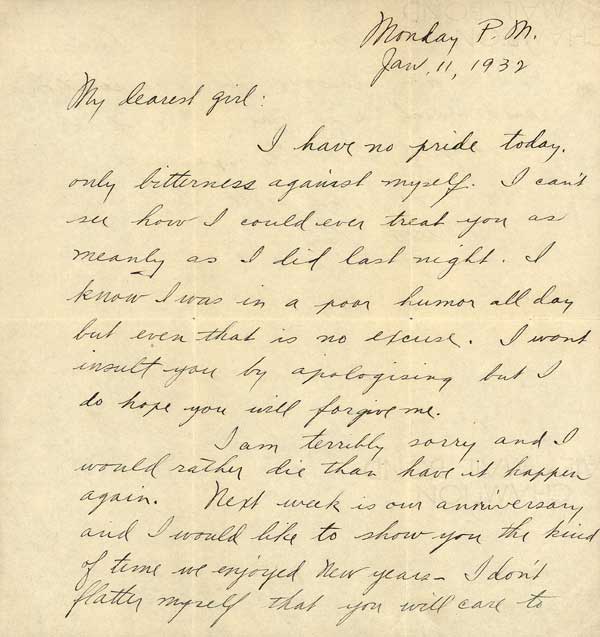 Monday P.M.
Jan. 11, 1932
My dearest girl:
I have no pride today,
only bitterness against myself. I can't
see how I could ever treat you as
meanly as I did last night. I
know I was in a poor humor all day
but even that is no excuse. I wont
insult you by apologising but I
do hope you will forgive me.
I am terribly sorry and I
would rather die than have it happen
again. Next week is our anniversary
and I would like to show you the kind
of time we enjoyed New years - I don't
flatter myself that you will care to